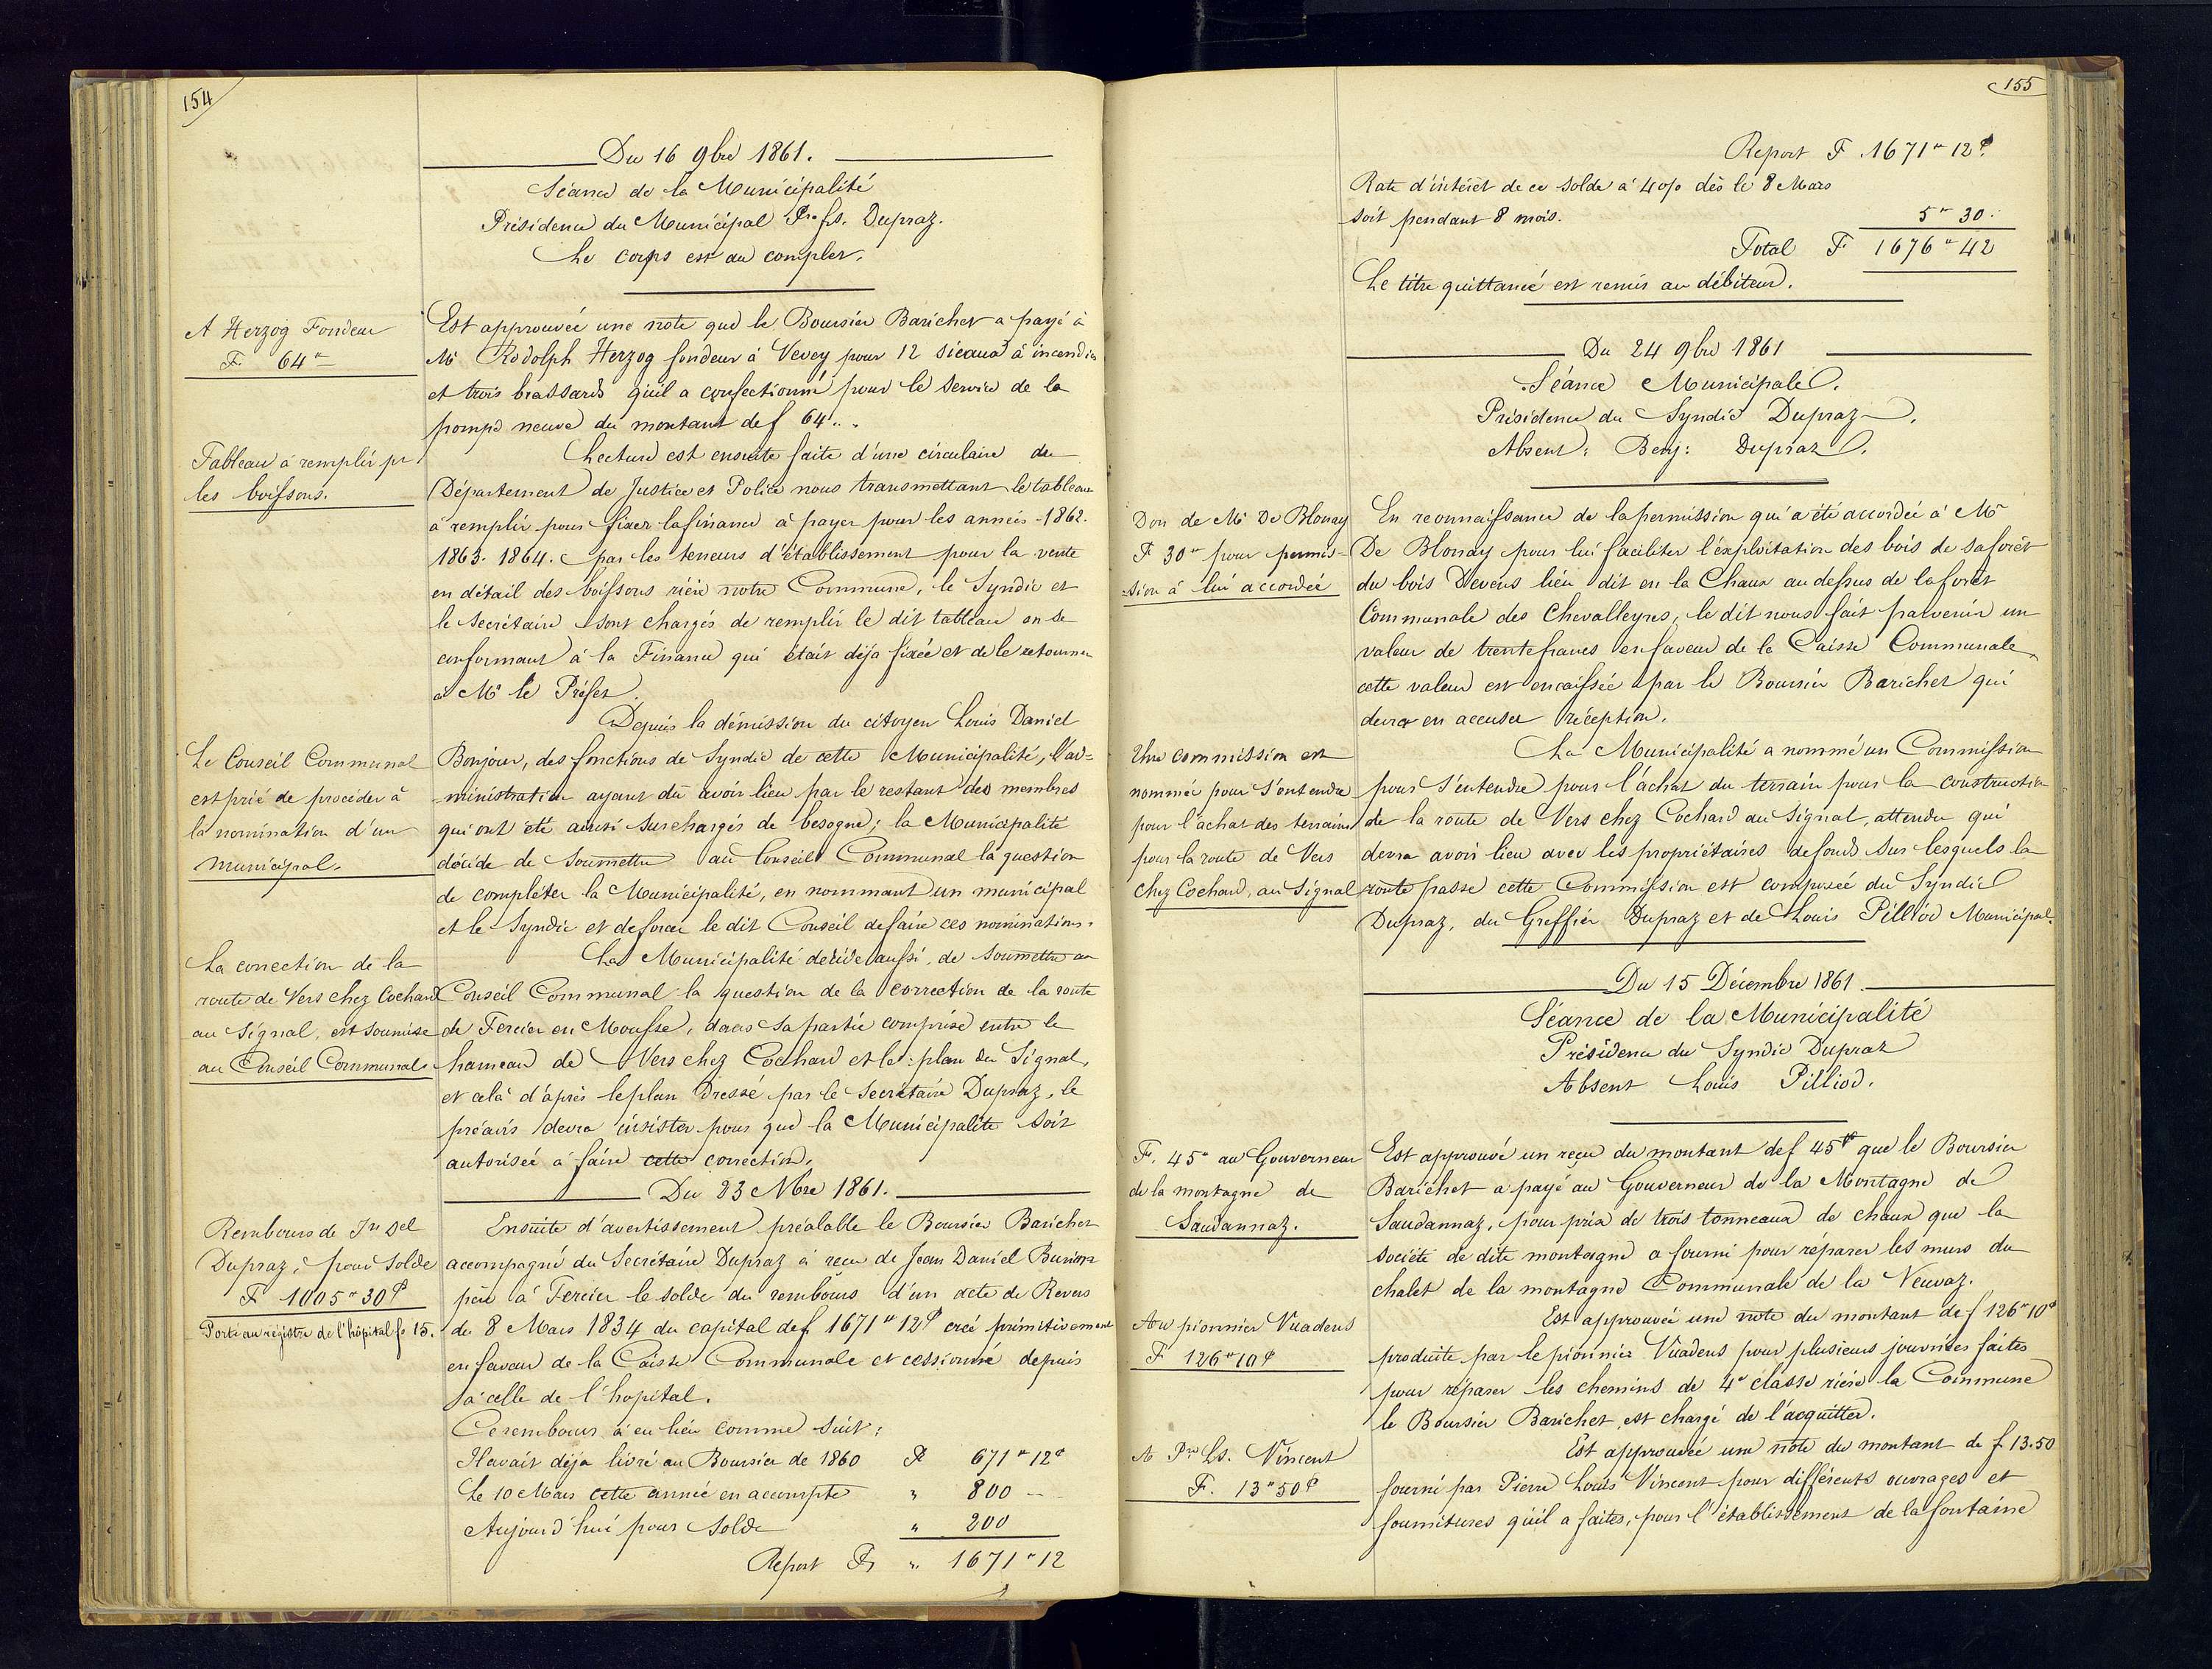 154
Du 16 9bre 1861.
Séance de la Municipalité
Présidence du Municipal Pre fs. Dupraz.
Le corps est au complet.
A Herzog Fondeur
F. 64"—
Est approuvée une note que le Boursier Barichet a payé à
Mr Rodolph Herzog fondeur à Vevey pour 12 siceaux à incendies
et trois brassards qu'il a confectionné pour le service de la
pompe neuve du montant de f 64"..
Tableau à remplir pr
les boissons.
Lecture est ensuite faite d'une circulaire du
Département de Justice et Police nous transmettant le tableau
à remplir pour fixer la finance à payer pour les années 1862.
1863. 1864. par les teneurs d'établissement pour la vente
en détail des boissons rière notre Commune, le Syndic et
le secrétaire sont chargés de remplir le dit tableau en se
conformant à la Finance qui était déja fixée et de le retourner
à Mr le Préfet.
Depuis la démission du citoyen Louis Daniel
Le Conseil Communal
est prié de procéder à
la nomination d'un
municipal.
Bonjour, des fonctions de Syndic de cette Municipalité, l'ad=
ministration ayant dû avoir lieu par le restant des membres
qui ont été ainsi surchargés de besogne; la Municipalité
décide de soumettre au Conseil Communal la question
de compléter la Municipalité, en nommant un municipal
et le Syndic et de forcer le dit Conseil de faire ces nominations.
La correction de la
route de Vers chez Cochard
au Signal, est soumise
au Conseil Communal.
La Municipalité décide aussi, de soumettre au
Conseil Communal la question de la correction de la route
de Fercier en Mousse, dans sa partie comprise entre le
hameau de Vers chez Cochard et le plan du Signal,
et celà d'après le plan dressé par le Secrétaire Dupraz, le
préavis devra insister pour que la Municipalité soit
autorisée à faire cette correction.
Du 23 Nbre 1861.
Rembours de Jn Del
Dupraz, pour solde
F 1005"30 c
Porté au régistre de l'hôpital fo 15.
Ensuite d'avertissement préalable le Boursier Barichet
accompagné du Secrétaire Dupraz à reçu de Jean Daniel
père à Fercier le solde du rembours d'un acte de Revers
de 8 Mars 1834 du capital de f 1671"12 c créé primitivement
en faveur de la Caisse Communale et cessionné depuis
à celle de l'hopital.
Ce rembours à eu lieu comme suit:
Il avait déja livré au Boursier de 1860 F 671"12 c
Le 10 Mars cette année en accompte " 800 —
Aujourd'hui pour solde " 200
Report F " 1671"12
155
Report F 1671"12 c.
Rate d'intérêt de ce solde à 4 0/0 dès le 8 Mars
soit pendant 8 mois. 5"30.
Total F 1676"42
Le titre quittancé est remis au débiteur.
Du 24 9bre 1861
Séance Municipale.
Présidence du Syndic Dupraz.
Absent: Benj: Dupraz.
Don de Mr De Blonay
F 30" pour permis-
sion à lui accordée
En reconnaissance de la permission qui a été accordée à Mr
De Blonay pour lui faciliter l'exploitation des bois de sa forêt
du bois Devens lieu dit en la Chaux au dessus de la forêt
Communale des Chevalleyres, le dit nous fait parvenir un
valeur de trente francs en faveur de la Caisse Communale,
cette valeur est encaissée par le Boursier Barichet qui
devra en accuser réception.
Une commission est
nommée pour s'entendre
pour l'achat des terrains
pour la route de Vers
chez Cochard, au Signal
La Municipalité a nommé un Commission
pour s'entendre pour l'achat du terrain pour la construction
de la route de Vers chez Cochard au Signal, attendu qui
devra avoir lieu avec les propriétaires de fonds sur lesquels la
route passe cette Commission est composée du Syndic
Dupraz, du Greffier Dupraz et de Louis Pilliod Municipal.
Du 15 Décembre 1861.
Séance de la Municipalité
Présidence du Syndic Dupraz
Absent Louis Pilliod.
F. 45" au Gouverneur
de la montagne de
Saudannaz.
Est approuvé un reçu du montant de f 45" que le Boursier
Barichet a payé au Gouverneur de la Montagne de
Saudannaz, pour prix de trois tonneaux de chaux que la
société de dite montagne a fourni pour réparer les murs du
chalet de la montagne Communale de la Neuvaz.
Au pionnier Vuadens
F 126"10 c
Est approuvée une note du montant de f 126"10 c
produite par le pionnier Vuadens pour plusieurs journées faites
pour réparer les chemins de 4e classe rière la Commune
le Boursier Barichet est chargé de l'acquitter.
A Pre Ls. Vincent
F. 13"50 c
Est approuvée une note du montant de f 13.50
fourni par Pierre Louis Vincent pour différents ouvrages et
fournitures qu'il a faites, pour l'établissement de la fontaine